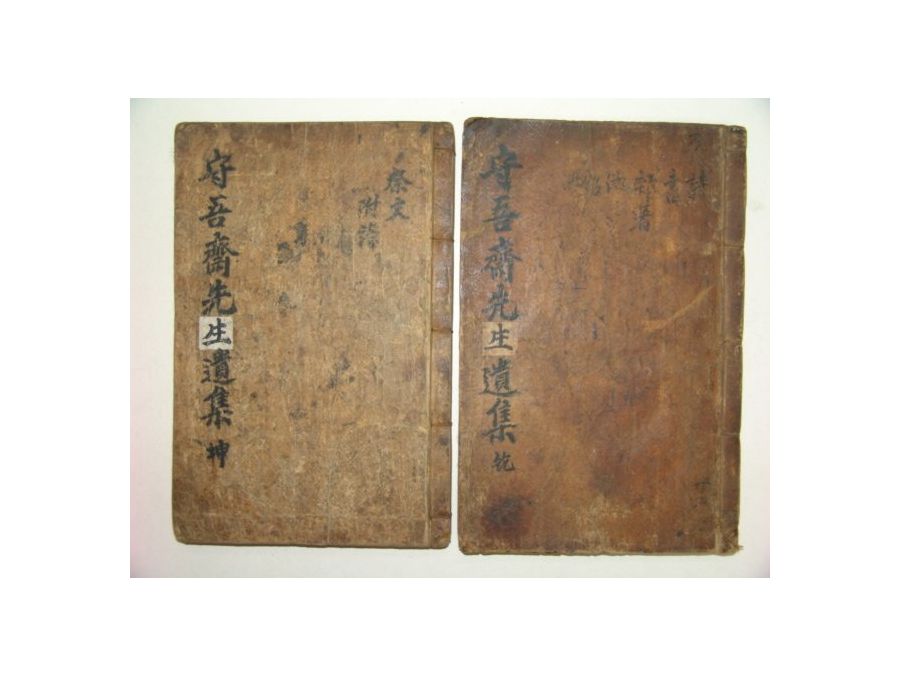 詩
書
雜著
守吾齋先生遺集 乾
祭文
附錄
守吾齋先生遺集 坤